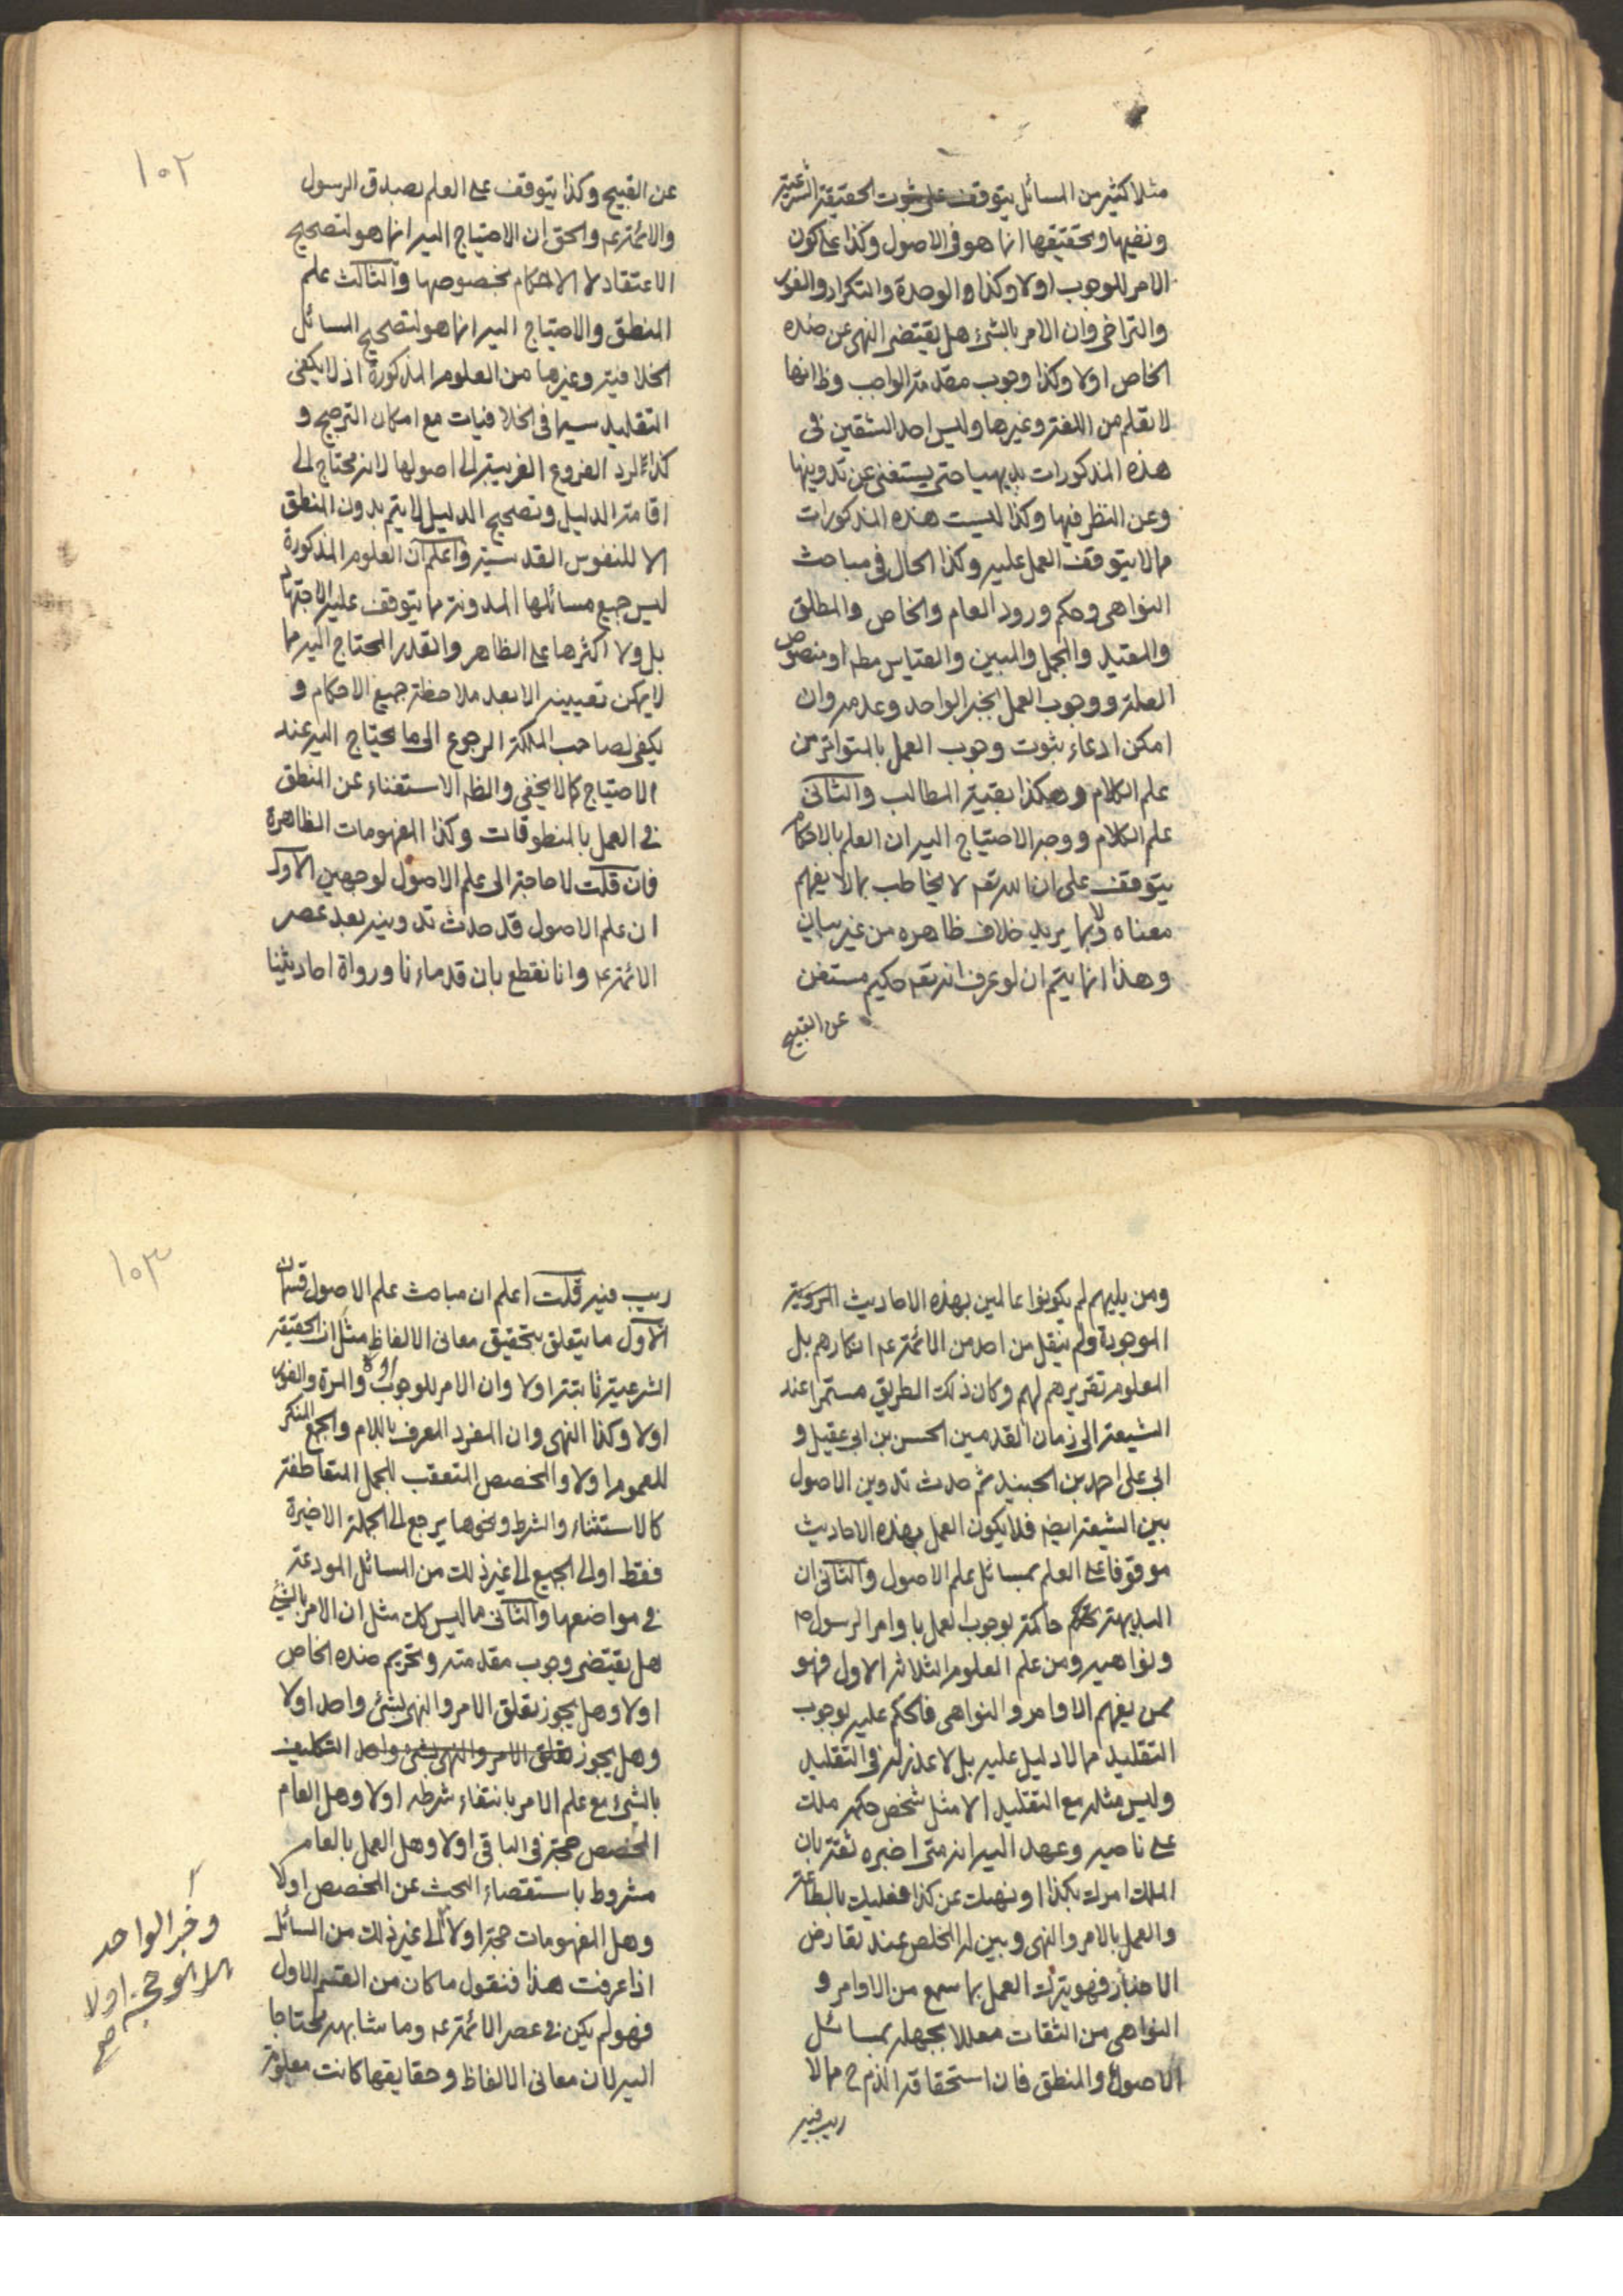 مثلا كثير من المسائل يتوقف على ثبوت الحقيقة الشرعية
ونفيها وتحقيقها انما هو فى الاصول وكذا على كون
الامر للوجوب اولا وكذا والوحدة والتكرار والفور
والتراخى وان الامر بالشئ هل يقتضى النهى عن ضده
الخاص اولا وكذا وجوب مقدمة الواجب وظ انها
لا تعلم من اللغة وغيرها وليس احد الشقين فى
هذه المذكورات بديهيا حتى يستغنى عن تدوينها
وعن النظر فيها وكذا ليست هذه المذكورات
مما لا يتوقف العمل عليه وكذا الحال فى مباحث
النواهى وحكم ورود العام والخاص والمطلق
والمقيد والمجمل والمبين والقياس مطه او منصوص
العلة ووجوب العمل بخبر الواحد وعدمه وان
امكن ادعاء ثبوت وجوب العمل بالمتواتر من
علم الكلام وهكذا بقية المطالب والثانى
علم الكلام ووجه الاحتياج اليه ان العلم بالاحكام
يتوقف على ان الله تعه لا يخاطب بما لا يفهم
معناه ولا بما يريد خلاف ظاهره من غير بيان
وهذا انما يتم ان لو عرف انه تعه حكيم مستغن
عن القبيح
١٠٢
عن القبيح وكذا يتوقف على العلم بصدق الرسول
والائمة عه والحق ان الاحتياج اليه انما هو لتصحيح
الاعتقاد لا الاحكام بخصوصها والثالث علم
المنطق والاحتياج اليه انما هو لتصحيح المسائل
الخلافية وغيرها من العلوم المذكورة اذ لا يكفى
التقليد سيما فى الخلافيات مع امكان الترجيح و
كذا لرد الفروع الغريبة الى اصولها لانه محتاج الى
اقامة الدليل وتصحيح الدليل لا يتم بدون المنطق
الا للنفوس القدسية واعلم ان العلوم المذكورة
ليس جميع مسائلها المدونة مما يتوقف عليه الاجتهاد
بل ولا اكثرها على الظاهر والقدر المحتاج اليه مما
لا يمكن تعيينه الا بعد ملاحظة جميع الاحكام و
يكفى لصاحب الملكة الرجوع الى ما يحتاج اليه عند
الاحتياج كما لا يخفى والظه الاستغناء عن المنطق
فى العمل بالمنطوقات وكذا المفهومات الظاهرة
فان قلت لا حاجة الى علم الاصول لوجهين الاول
ان علم الاصول قد حدث تدوينه بعد عصر
الائمة عه وانا نقطع بان قدماءنا ورواة احاديثنا
ومن يليهم لم يكونوا عالمين بهذه الاحاديث المروية
الموجودة ولم ينقل من احد من الائمة عه انكارهم بل
المعلوم تقريرهم لهم وكان ذلك الطريق مستمرا عند
الشيعة الى زمان القدمين الحسن بن ابى عقيل و
ابى على احمد بن الجنيد ثم حدث تدوين الاصول
بين الشيعة ايضه فلا يكون العمل بهذه الاحاديث
موقوفا على العلم بمسائل علم الاصول والثانى ان
البديهة حاكمة بوجوب العمل باوامر الرسول ص
ونواهيه ومن علم العلوم الثلاثة الاول فهو
ممن يفهم الاوامر والنواهى فالحكم عليه بوجوب
التقليد مما لا دليل عليه بل لا عذر له فى التقليد
وليس مثله مع التقليد الا مثل شخص حكمه ملك
على ناحية وعهد اليه انه متى اخبره ثقة بان
الملك امرك بكذا او نهاك عن كذا فعليك بالطاعة
والعمل بالامر والنهى وبين له المخلص عند تعارض
الاخبار فهو يترك العمل بما سمع من الاوامر و
النواهى من الثقات معللا بجهله بمسائل
الاصول والمنطق فان استحقاقه الذم ح مما لا
ريب فيه
١٠٣
ريب فيه قلت اعلم ان مباحث علم الاصول قسمان
الاول ما يتعلق بتحقيق معانى الالفاظ مثل ان الحقيقة
الشرعية ثابتة اولا وان الامر للوجوب اولا والمرة والفور
اولا وكذا النهى وان المفرد المعرف باللام والجمع المنكر
للعموم اولا والمخصص المتعقب للجمل المتعاطفة
كالاستثناء والشرط ونحوها يرجع الى الجملة الاخيرة
فقط او الى الجميع الى غير ذلك من المسائل المودعة
فى مواضعها والثانى ما ليس كك مثل ان الامر بالشئ
هل يقتضى وجوب مقدمته وتحريم ضده الخاص
اولا وهل يجوز تعلق الامر والنهى بشئ واحد اولا
وهل يجوز تعلق الامر والنهى بشئ واحد التكليف
بالشئ مع علم الامر بانتفاء شرطه اولا وهل العام
المخصص حجة فى الباقى اولا وهل العمل بالعام
مشروط باستقصاء البحث عن المخصص اولا
وهل المفهومات حجة اولا الى غير ذلك من المسائل
اذا عرفت هذا فنقول ما كان من القسم الاول
فهو لم يكن فى عصر الائمة عه وما شابهه محتاجا
اليه لان معانى الالفاظ وحقايقها كانت معلومة
وخبر الواحد
حجة اولا
صح